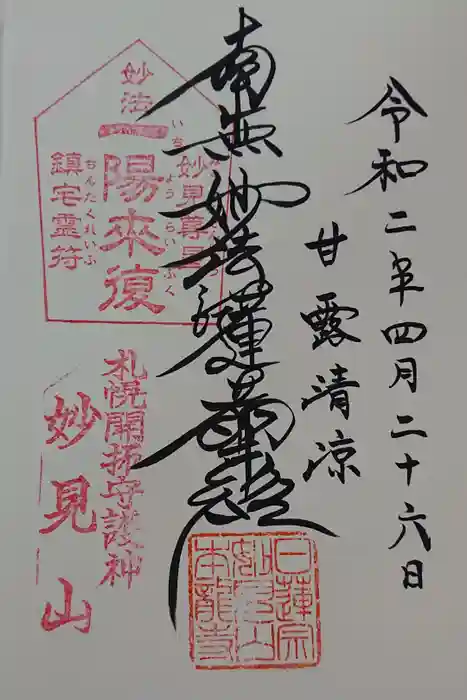 令和二年四月二十六日
甘露清凉
南無妙法蓮華経
妙法
一陽來復
いちようらいふく
妙見尊星
鎮宅霊符
ちんたくれいふ
札幌開拓守護神
妙見山
日蓮宗
妙見山
本龍寺